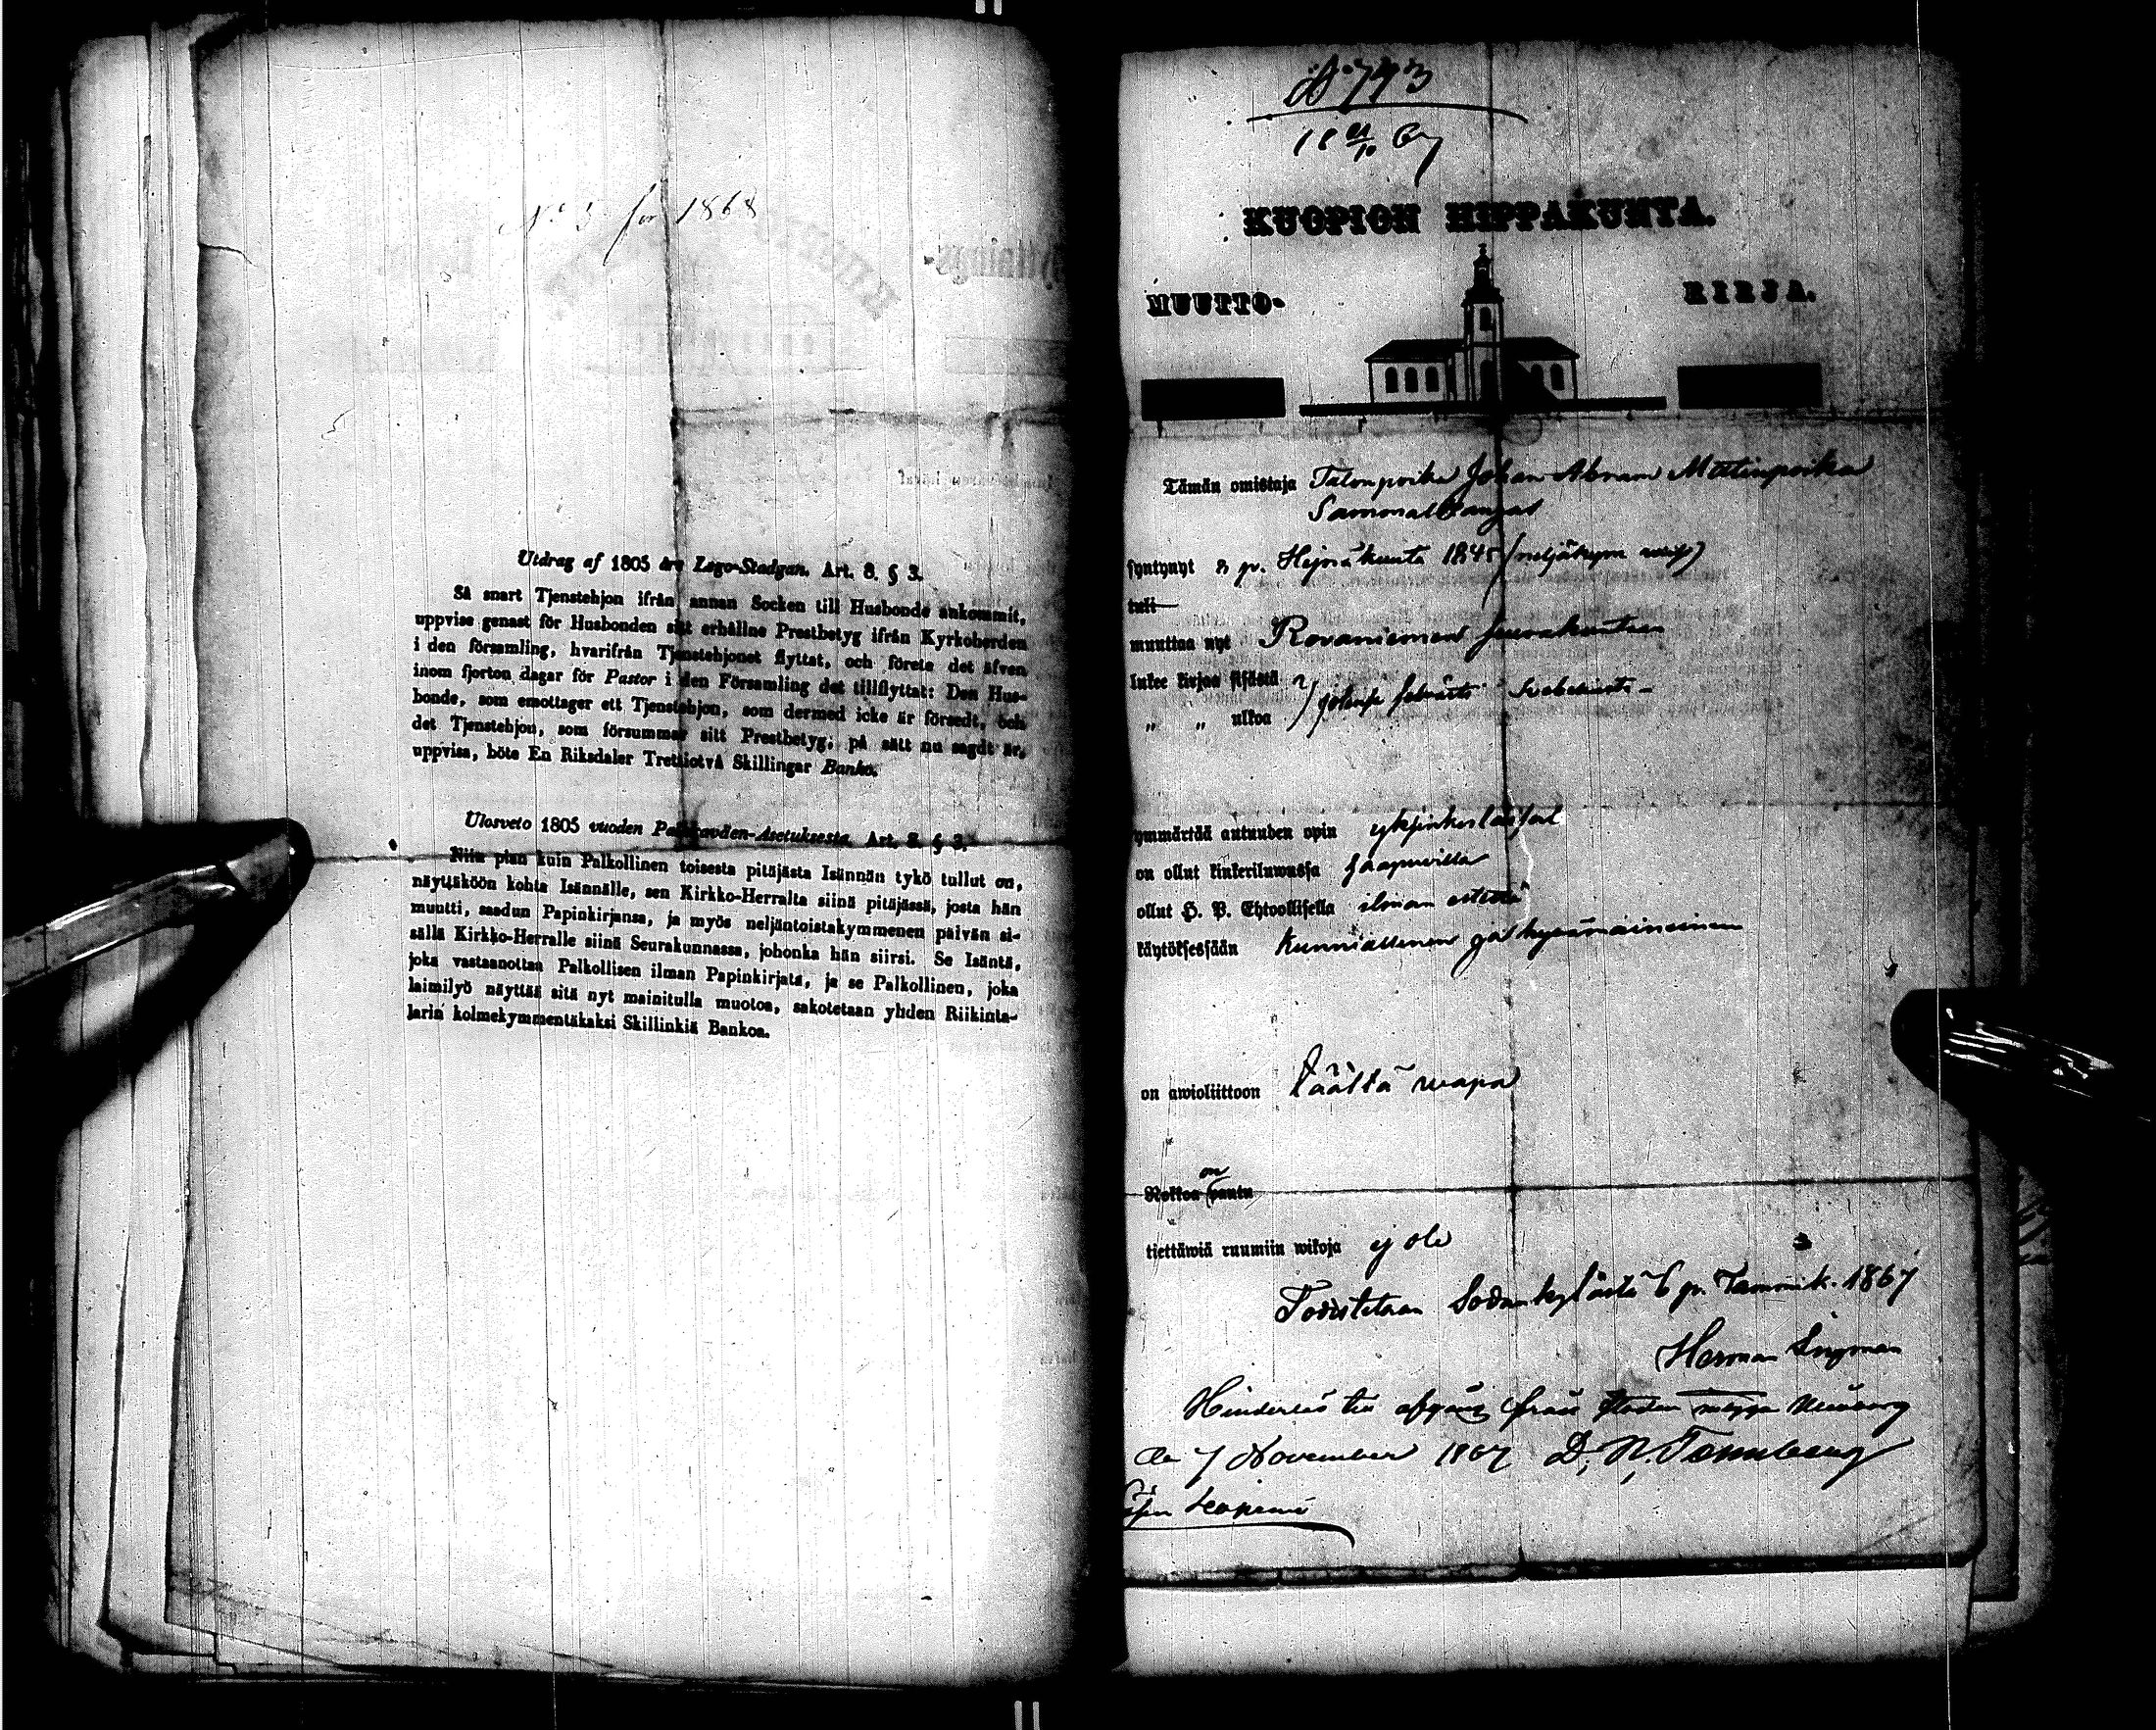 No 3 för 1868
Utdrag af 1805 års Lego-Stadgan. Art. 8. § 3.
Så snart Tjenstehjon ifrån annan Socken till Husbonde ankommit,
uppvise genast för Husbonden sitt erhållne Prestbetyg ifrån Kyrkoherden
i den församling, hvarifrån Tjenstehjonet flyttat, och förete det äfven
inom fjorton dagar för Pastor i den Församling det tillflyttat: Den Hus-
bonde, som emottager ett Tjenstehjon, som dermed icke är försedt, och
det Tjenstehjon, som försummar sitt Prestbetyg, på sätt nu sagdt är,
uppvisa, böte En Riksdaler Trettiotvå Skillingar Banko.
Ulosveto 1805 vuoden Palkkaväen-Asetuksesta. Art. 8. § 3.
Niin pian kuin Palkollinen toisesta pitäjästa Isännän tykö tullut on,
näyttäköön kohta Isännälle, sen Kirkko-Herralta siinä pitäjässä, josta hän
muutti, saadun Papinkirjansa, ja myös neljäntoistakymmenen päivän si-
sällä Kirkko-Herralle siinä Seurakunnassa, johonka hän siirsi. Se Isäntä,
joka vastaanottaa Palkollisen ilman Papinkirjata, ja se Palkollinen, joka
laimilyö näyttää sitä nyt mainitulla muotoa, sakotetaan yhden Riikinta-
larin kolmekymmentäkaksi Skillinkiä Bankoa.
№ 793
18 21/10 67
KUOPION HIPPAKUNTA.
MUUTTO- KIRJA.
Tämän omistaja Talonpoika Johan Abram Matinpoika
Sammalkangas
syntynyt 8 p. Heinäkuuta 1845
tuli
muuttaa nyt Rovaniemen seurakuntaan
lukee kirjaa sisästä
„ „ ulkoa
ymmärtää autuuden opin yksinkertaisest
on ollut kinkeriluwussa saapuvilla
ollut H. P. Ehtoollisella ilman estettä
käytöksessään kunniallinen ja hyvämaineinen
on awioliittoon täältä wapa
Rokkoa on pantu
tiettäwiä ruumiin wikoja ej ole
Todistetaan Sodankylästä 6 p. Tammik. 1867
Herman
Hinderlös till afgång från staden
den 7 November 1867